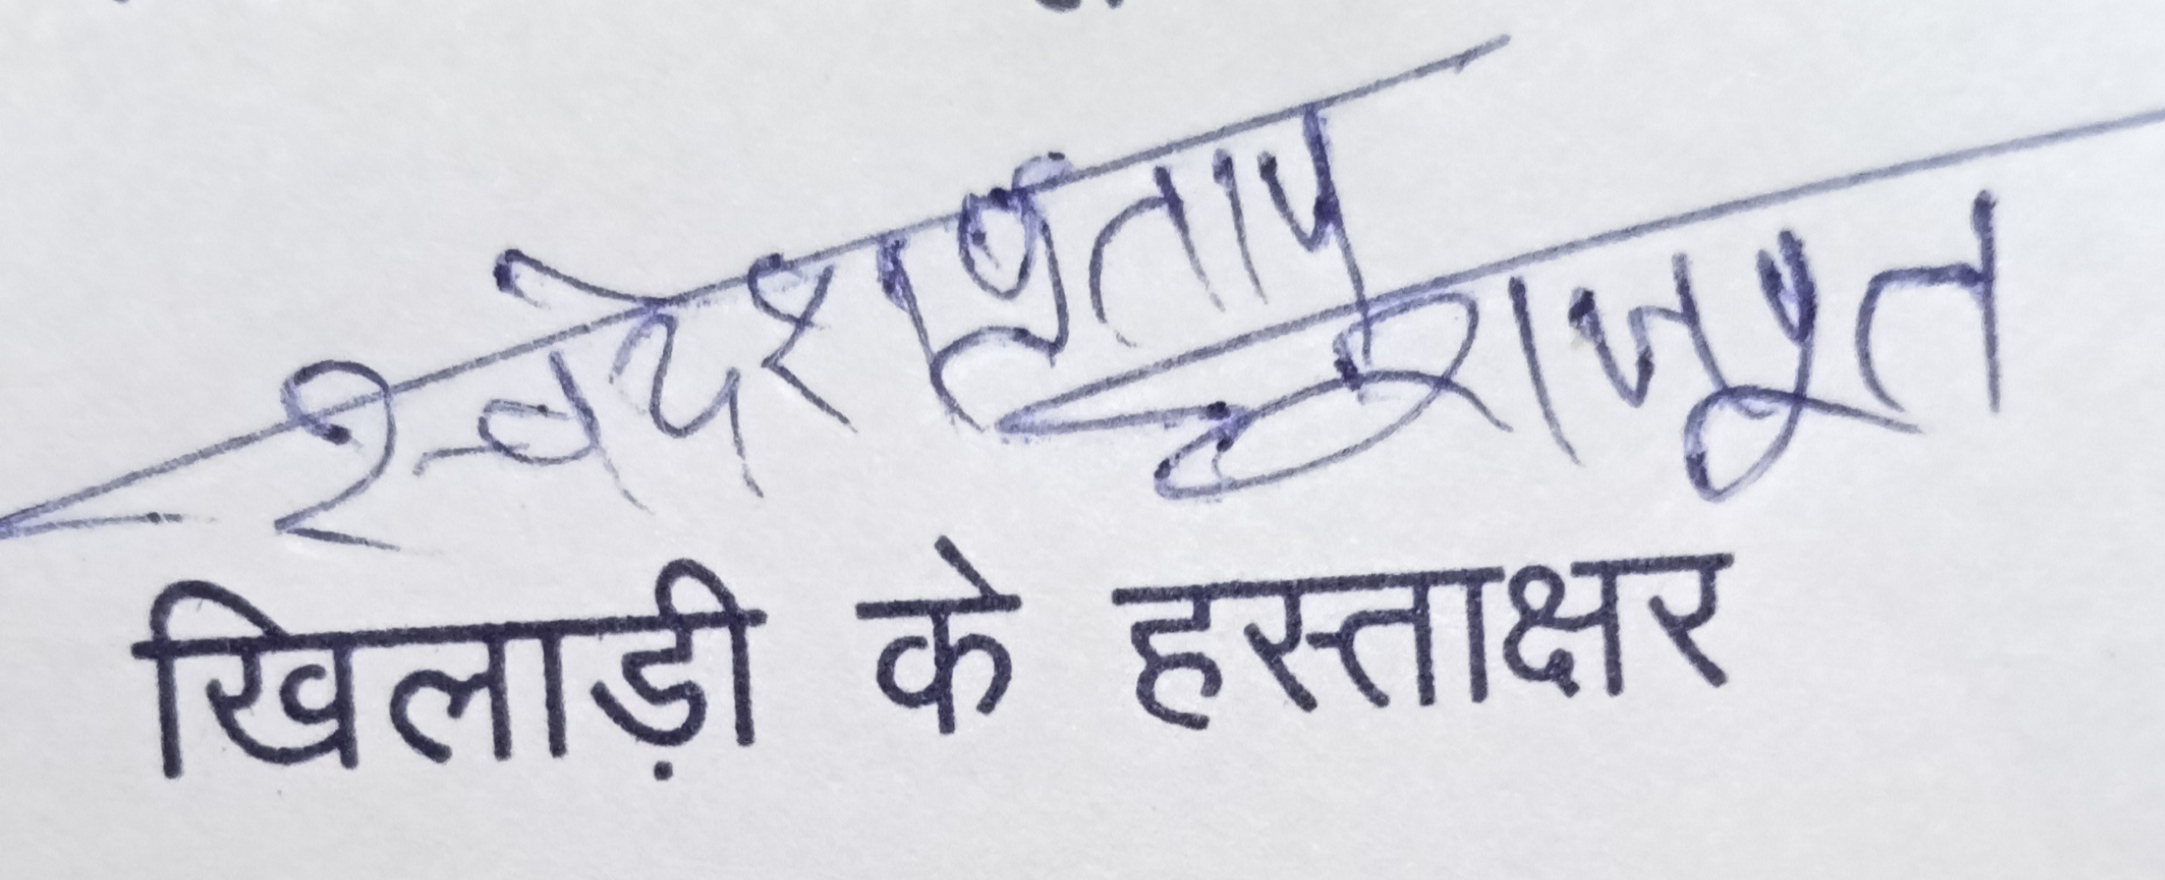 स्वदेश प्रताप
राजपूत
खिलाड़ी के हस्ताक्षर